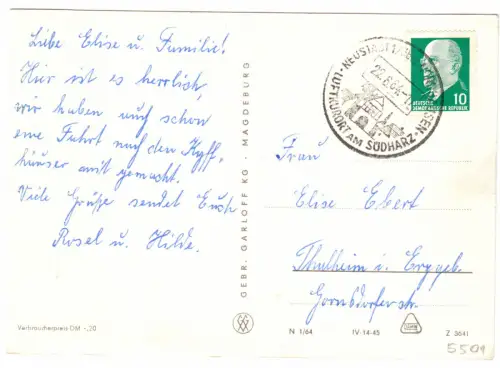 Liebe Elise u. Familie!
Hier ist es herrlich,
wir haben auch schon
eine Fahrt nach den Kyff-
häuser mit gemacht.
Viele Grüße sendet Euch
Rosel u. Hilde.
Verbraucherpreis DM -,20
GEBR. GARLOFF KG · MAGDEBURG
NEUSTADT
LUFTKURORT AM SÜDHARZ
DEUTSCHE
DEMOKRATISCHE REPUBLIK
10
Frau
Elise Ebert
Thalheim i. Erzgeb.
Gornsdorferstr.
N 1/64
IV-14-45
Z 5641
5501